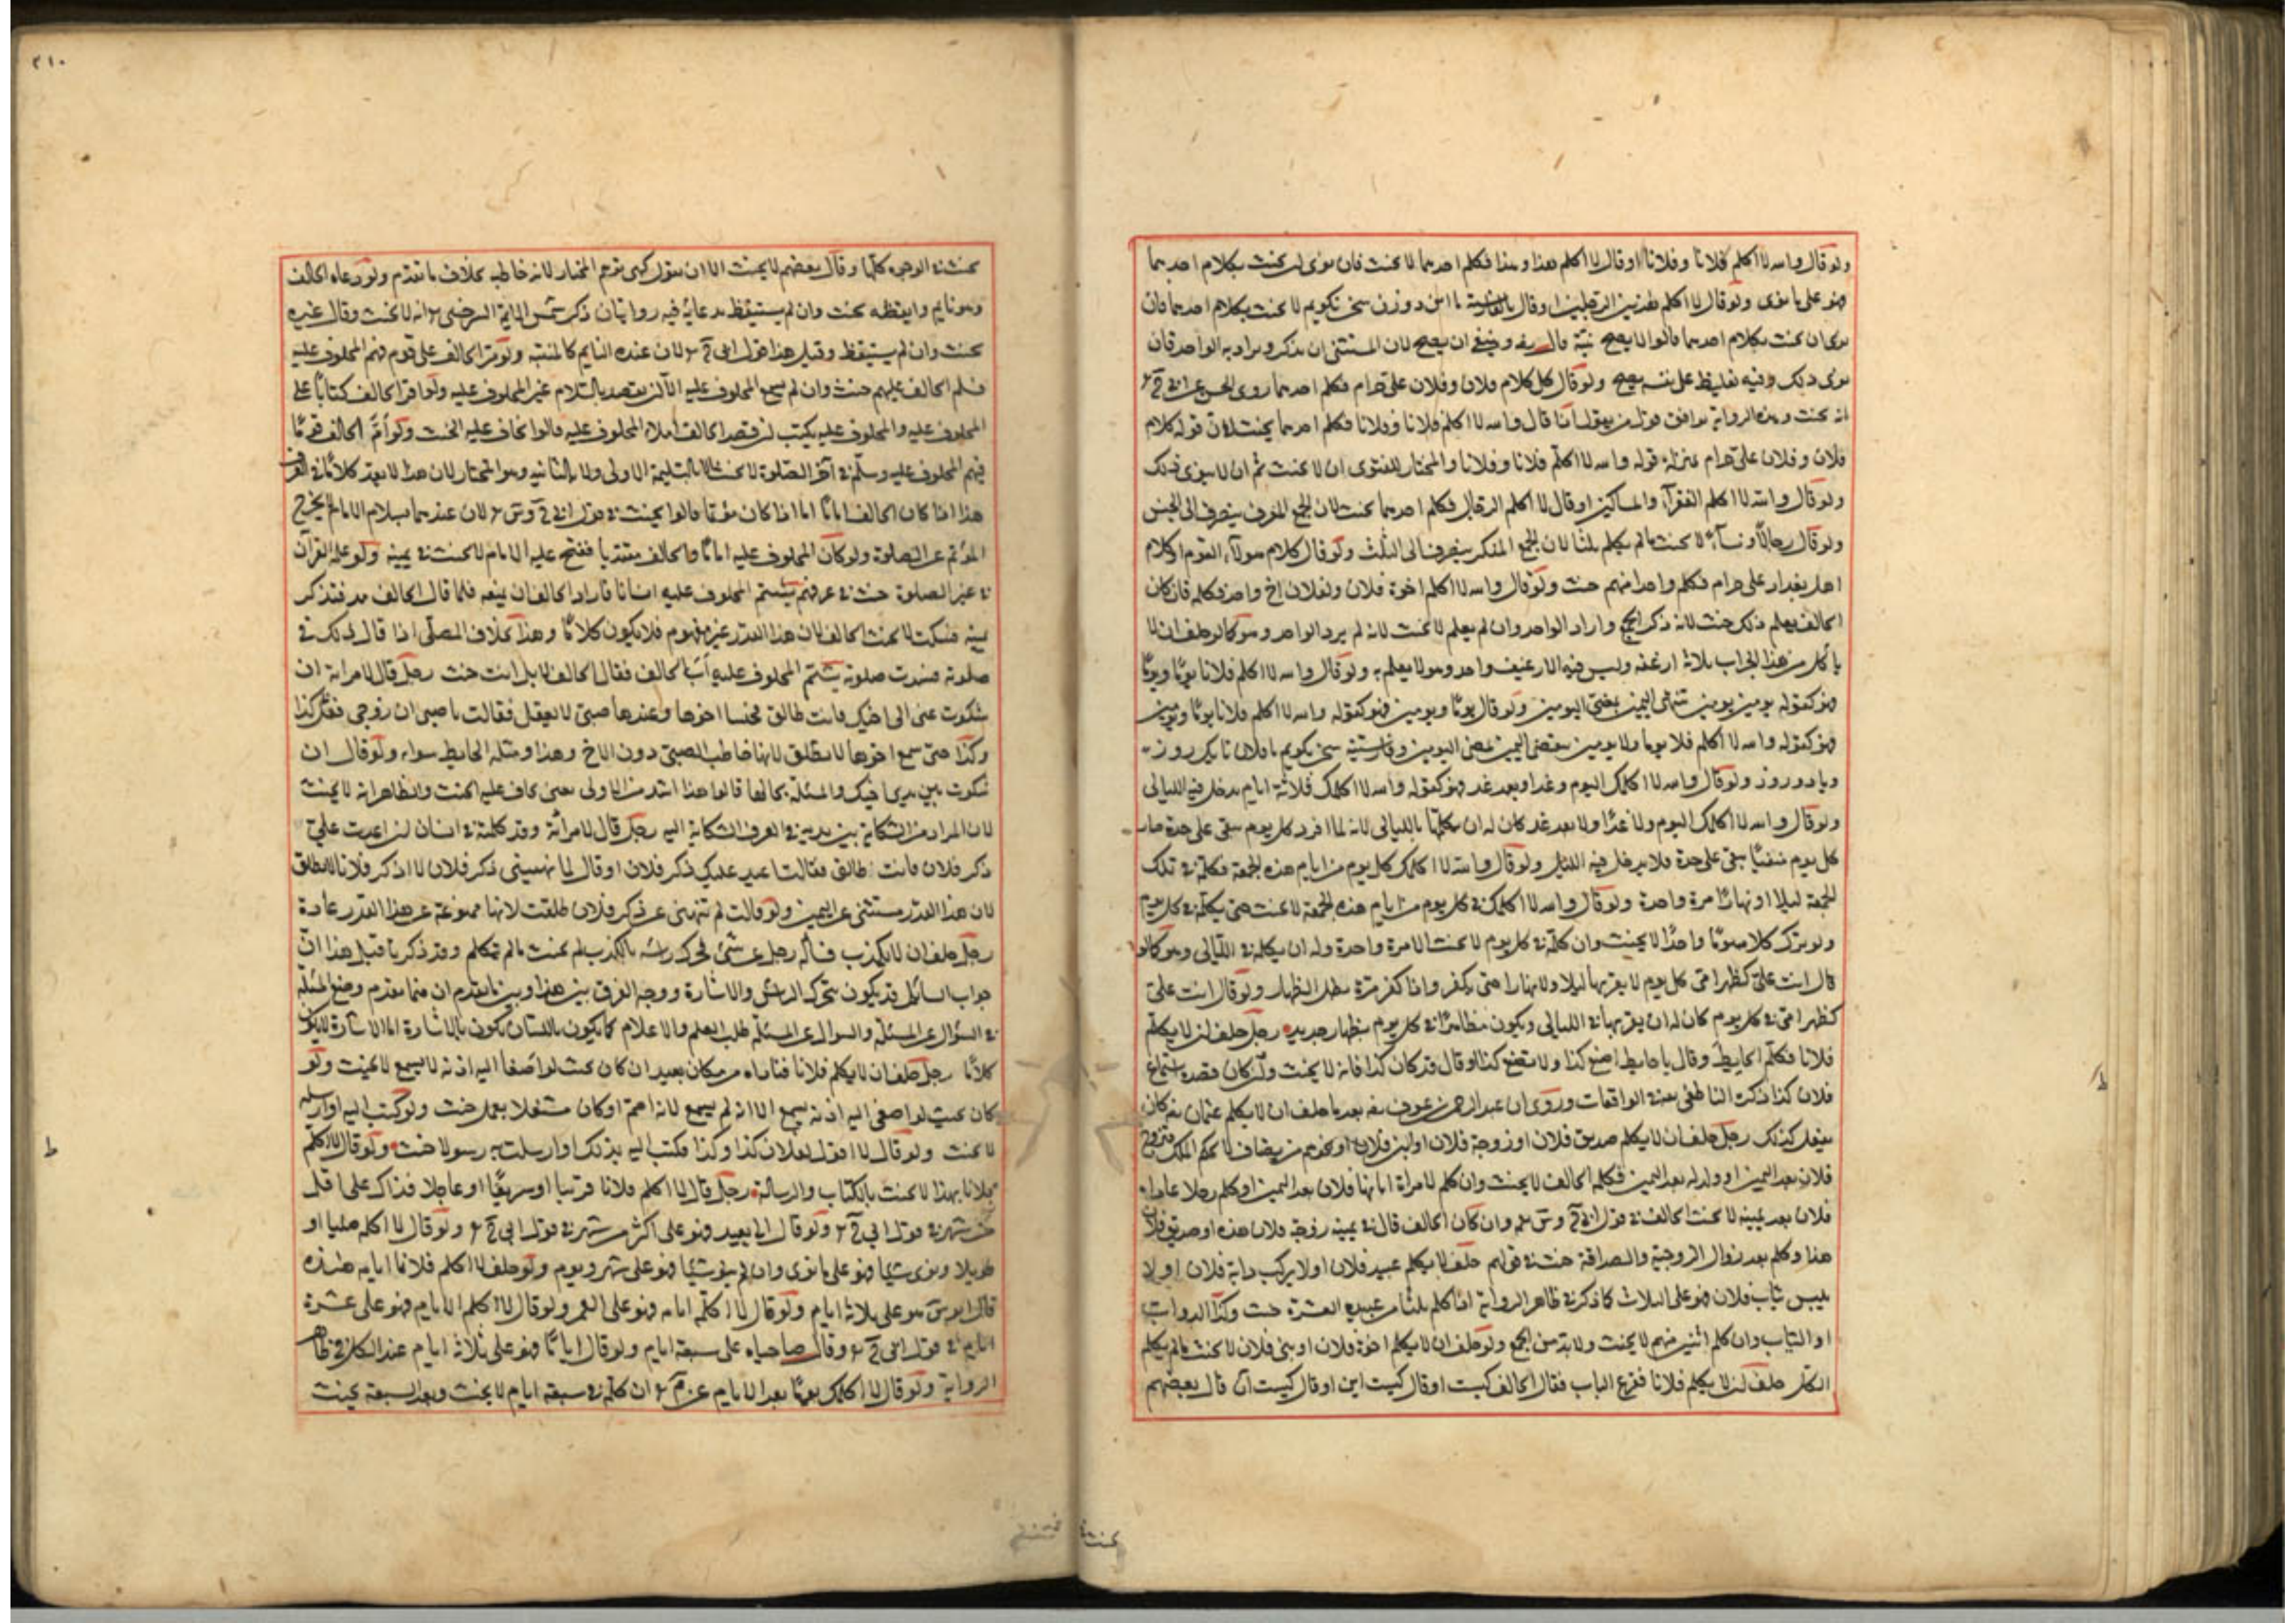 ولو قال والله لا اكلم فلانا وفلانا او قال لا اكلم هذا وهذا فكلم احدهما لا يحنث فان نوى ان يحنث بكلام احدهما
فهو على ما نوى ولو قال لا اكلم هذين الرجلين او قال بالفارسية با اين دو تن سخن نكويم لا يحنث بكلام احدهما فان
نوى ان يحنث بكلام احدهما قالوا لا يصح نية قال رضه وينبغي ان يصح لان المثنى ان يذكر ويراد به الواحد فان
نوى ذلك وفيه تغليظ على نفسه يصح ولو قال كل كلام فلان وفلان على حرام فكلم احدهما روى الحسن عن ابي ح
انه يحنث وهذه الرواية توافق قول من يقول اذا قال والله لا اكلم فلانا وفلانا فكلم احدهما يحنث لان قوله كلام
فلان وفلان على حرام بمنزلة قوله والله لا اكلم فلانا وفلانا والمختار للفتوى ان لا يحنث ثم ان لا ينوى ذلك
ولو قال والله لا اكلم الفقراء والمساكين او قال لا اكلم الرجال فكلم احدهما يحنث لان الجمع المعرف ينصرف الى الجنس
ولو قال رجالا ونساء لا يحنث ما لم يكلم ثلثا لان الجمع المنكر ينصرف الى الثلث ولو قال كلام هولاء القوم او كلام
اهل بغداد على حرام فكلم واحدا منهم حنث ولو قال والله لا اكلم اخوة فلان ولفلان اخ واحد فكلمه فان كان
الحالف يعلم ذلك حنث لانه ذكر الجمع واراد الواحد وان لم يعلم لا يحنث لانه لم يرد الواحد وهو كما لو حلف ان لا
ياكل من هذا الجراب ثلاثة ارغفة وليس فيه الا رغيف واحد وهو لا يعلم به ولو قال والله لا اكلم فلانا يوما ويوما
فهو كقوله يومين يومين تنتهى اليمين بمضى اليومين ولو قال يوما ويومين فهو كقوله والله لا اكلم فلانا يوما ويومين
فهو كقوله والله لا اكلم فلانا يوما ولا يومين ينقضى اليمين بمضى اليومين وفارسيته سخن نكويم با فلان تا يك روز
ويا دو روز ولو قال والله لا اكلمك اليوم وغدا وبعد غد فهو كقوله والله لا اكلمك ثلاثة ايام يدخل فيه الليالي
ولو قال والله لا اكلمك اليوم ولا غدا ولا بعد غد كان له ان يكلمها بالليالي لانه لما افرد كل يوم بنفي على حدة صار
كل يوم منفيا بنفي على حدة فلا يدخل فيه الليل ولو قال والله لا اكلمك كل يوم من ايام هذه الجمعة فكلمه في تلك
الجمعة ليلا او نهارا مرة واحدة ولو قال والله لا اكلمك في كل يوم من ايام هذه الجمعة لا يحنث حتى يكلمه في كل يوم
ولو ترك كلامه يوما واحدا لا يحنث وان كلمه في كل يوم لا يحنث الا مرة واحدة وله ان يكلمه في الليالي وهو كما لو
قال انت علي كظهر امي كل يوم لا يقربها ليلا ولا نهارا حتى يكفر واذا كفر مرة بطل الظهار ولو قال انت علي
كظهر امي في كل يوم كان له ان يقربها في الليالي ويكون مظاهرا في كل يوم بظهار جديد رجل حلف ان لا يكلم
فلانا فكلم الحايط وقال يا حايط اصنع كذا ولا تصنع كذا او قال قد كان كذا فانه لا يحنث وان كان قصده اسماع
فلان كذا ذكره الناطفي في الواقعات وروى ان عبد الرحمن بن عوف رضه بعد ما حلف ان لا يكلم عثمان رضه كان
يفعل كذلك رجل حلف ان لا يكلم صديق فلان او زوجة فلان او ابن فلان او نحوهم من يضاف لا بحكم الملك فتزوج
فلان بعد اليمين او ولد له بعد اليمين فكلم الحالف لا يحنث وان كلم لامراة ابانها فلان بعد اليمين او كلم رجلا عاداه
فلان بعد يمينه لا يحنث الحالف في قول ابي ح وس وان كان الحالف قال في يمينه زوجة فلان هذه او صديق فلان
هذا وكلم بعد زوال الزوجية والصداقة حنث في قولهم حلف لا يكلم عبيد فلان او لا يركب دابة فلان او لا
يلبس ثياب فلان فهو على الثلاث كما ذكر في ظاهر الرواية اذا كلم ثلثا من عبيده العشرة حنث وكذا الدواب
او الثياب وان كلم اثنين منهم لا يحنث ولا بد من الجمع ولو حلف ان لا يكلم اخوة فلان او بني فلان لا يحنث ما لم يكلم
الكل حلف ان لا يكلم فلانا فقرع الباب فقال الحالف كيست او قال كيست اين او قال كيست آن قال بعضهم
يحنث في
٢١٠
يحنث في الوجوه كلها وقال بعضهم لا يحنث الا ان يقول كيى توهو المختار لانه خاطبه بخلاف ما تقدم ولو دعاه الحالف
وهو نايم وايقظه يحنث وان لم يستيقظ بدعائه فيه روايتان ذكر شمس الايمة السرخسي انه لا يحنث وقال غيره
يحنث وان لم يستيقظ وقيل هذا قول ابي ح لان عنده النايم كالمنتبه ولو مر الحالف على قوم فيهم المحلوف عليه
فسلم الحالف عليهم حنث وان لم يسمع المحلوف عليه الا ان يقصد بالسلام غير المحلوف عليه ولو قرا الحالف كتابا على
المحلوف عليه والمحلوف عليه يكتب ان قصد الحالف املاء المحلوف عليه قالوا يخاف عليه الحنث ولو أمّ الحالف قوما
فيهم المحلوف عليه وسلم في آخر الصلوة لا يحنث لا بالتسليمة الاولى ولا بالثانية وهو المختار لان هذا لا يعد كلاما في العرف
هذا اذا كان الحالف اماما اما اذا كان مؤتما قالوا يحنث في قول ابي ح وس لان عندهما بسلام الامام لا يخرج
المؤتم عن الصلوة ولو كان المحلوف عليه اماما والحالف مقتديا ففتح عليه الامام لا يحنث في يمينه ولو علمه القرآن
في غير الصلوة حنث في عرفهم يشتم المحلوف عليه انسانا فاراد الحالف ان يمنعه فلما قال الحالف مه فتذكر
يمينه فسكت لا يحنث الحالف لان هذا القدر غير مفهوم فلا يكون كلاما وهذا بخلاف المصلي اذا قال ذلك في
صلوته فسدت صلوته يشتم المحلوف عليه اب الحالف فقال الحالف لا بل انت حنث رجل قال لامراته ان
شكوت عني الى اخيك فانت طالق فجاء اخوها وعندها صبي لا يعقل فقالت يا صبي ان زوجي فعل كذا
وكذا حتى سمع اخوها لا تطلق لانها خاطبت الصبي دون الاخ وهذا ومثله الحايط سواء ولو قال ان
شكوت بين يدي اخيك والمسئلة بحالها قالوا هذا اشد من الاولى يعني يخاف عليه الحنث والظاهر انه لا يحنث
لان المراد من الشكاية بين يديه في العرف الشكاية اليه رجل قال لامراته وقد كلمته في انسان ان اعدت علي
ذكر فلان فانت طالق فقالت لا اعيد عليك ذكر فلان او قال لما نهيتني ذكر فلان لا اذكر فلانا لا تطلق
لان هذا القدر مستثنى عن اليمين ولو قالت لم تنهني عن ذكر فلان طلقت لانها ممنوعة عن هذا القدر عادة
رجل حلف ان لا يكذب فسأله رجل عن شئ فحرك راسه بالكذب لم يحنث ما لم يتكلم وقد ذكرنا قبل هذا ان
جواب السائل قد يكون بتحرك الراس والاشارة ووجه الفرق بين هذا وبين ما تقدم ان فيما تقدم وضع المسئلة
في السؤال عن المسئلة والسوال عن المسئلة طلب العلم والاعلام كما يكون باللسان يكون بالاشارة اما الاشارة لا يكون
كلاما رجل حلف ان لا يكلم فلانا فناداه من مكان بعيد ان كان بحيث لو اصغا اليه اذنه لا يسمع لا يحنث ولو
كان بحيث لو اصغى اليه اذنه يسمع الا انه لم يسمع لانه اصم او كان مشتغلا بعمل حنث ولو كتب اليه او ارسل
لا يحنث ولو قال لا اقول لفلان كذا وكذا فكتب اليه بذلك او ارسلت به رسولا حنث ولو قال لا اكلم
فلانا بهذا لا يحنث بالكتاب والرسالة رجل قال لا اكلم فلانا قريبا او سريعا او عاجلا فذاك على اقل
من شهر في قول ابي ح ولو قال الى بعيد فهو على اكثر من شهر في قول ابي ح ولو قال لا اكلمه مليا او
طويلا ونوى شيا فهو على ما نوى وان لم ينو شيا فهو على شهر ويوم ولو حلف لا اكلم فلانا ايامه هذه
قال ابو س هو على ثلاثة ايام ولو قال لا اكلمه ايامه فهو على العمر ولو قال لا اكلم الايام فهو على عشرة
ايام في قول ابي ح وقال صاحباه على سبعة ايام ولو قال اياما فهو على ثلاثة ايام عند الكل في ظاهر
الرواية ولو قال لا اكلمك يوما بعد الايام عن م ان كلمه في سبعة ايام لا يحنث وبعد السبعة يحنث